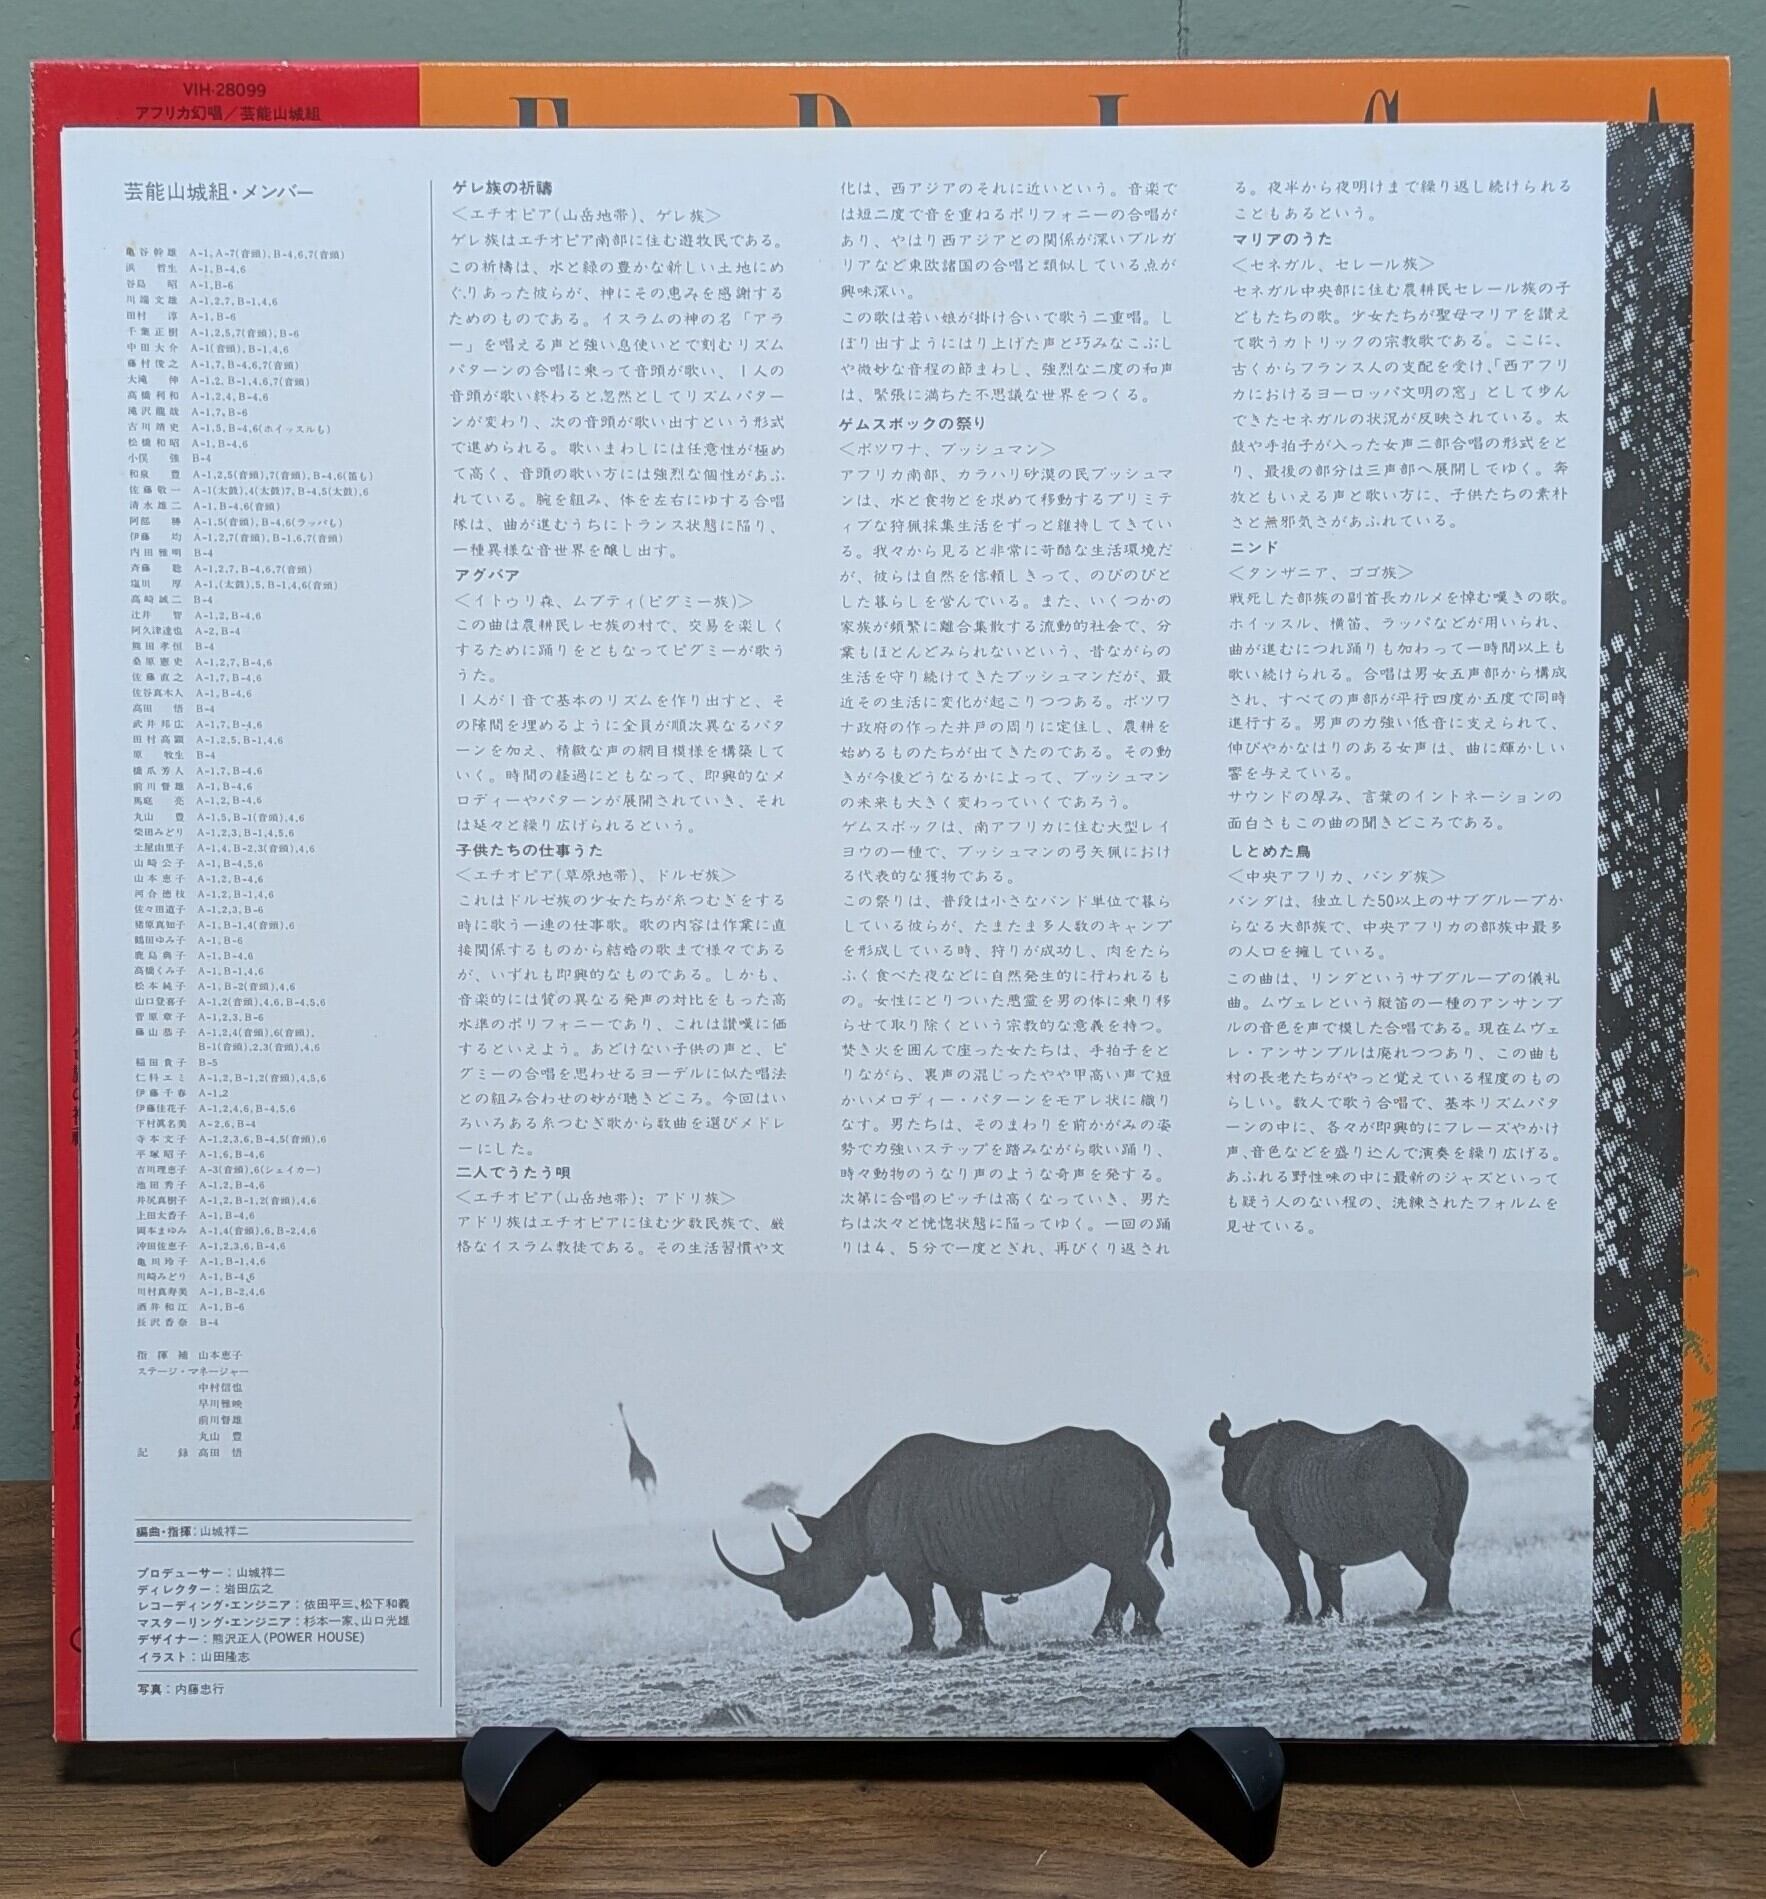 VIH-28099
アフリカ幻唱／芸能山城組
芸能山城組・メンバー
亀谷幹雄 A-1, A-7(音頭), B-4,6,7(音頭)
浜 哲生 A-1, B-4,6
谷島 昭 A-1, B-6
川端文雄 A-1,2,7, B-1,4,6
田村 淳 A-1, B-6
千葉正樹 A-1,2,5,7(音頭), B-6
中田大介 A-1(音頭), B-1,4,6
藤村俊之 A-1,7, B-4,6,7(音頭)
大滝 伸 A-1,2, B-1,4,6,7(音頭)
高橋利和 A-1,2,4, B-4,6
滝沢龍哉 A-1,7, B-6
古川靖史 A-1,5, B-4,6(ホイッスルも)
松橋和昭 A-1, B-4,6
小俣 強 B-4
和泉 豊 A-1,2,5(音頭),7(音頭), B-4,6(笛も)
佐藤敬一 A-1(太鼓),4(太鼓)7, B-4,5(太鼓),6
清水雄二 A-1, B-4,6(音頭)
阿部 勝 A-1,5(音頭), B-4,6(ラッパも)
伊藤 均 A-1,2,7(音頭), B-1,6,7(音頭)
内田雅明 B-4
斉藤 聡 A-1,2,7, B-4,6,7(音頭)
塩川 厚 A-1,(太鼓),5, B-1,4,6(音頭)
高崎誠二 B-4
辻井 智 A-1,2, B-4,6
阿久津達也 A-2, B-4
熊田孝恒 B-4
桑原憲史 A-1,2,7, B-4,6
佐藤直之 A-1,7, B-4,6
佐谷真木人 A-1, B-4,6
高田 悟 B-4
武井邦広 A-1,7, B-4,6
田村高顕 A-1,2,5, B-1,4,6
原 牧生 B-4
橋爪芳人 A-1,7, B-4,6
前川督雄 A-1, B-4,6
馬庭 亮 A-1,2, B-4,6
丸山 豊 A-1,5, B-1(音頭),4,6
柴田みどり A-1,2,3, B-1,4,5,6
土屋由里子 A-1,4, B-2,3(音頭),4,6
山崎公子 A-1, B-4,5,6
山本恵子 A-1,2, B-4,6
河合徳枝 A-1,2, B-1,4,6
佐々田道子 A-1,2,3, B-6
猪原真知子 A-1, B-1,4(音頭),6
鶴田ゆみ子 A-1, B-6
鹿島典子 A-1, B-4,6
高橋くみ子 A-1, B-1,4,6
松本純子 A-1, B-2(音頭),4,6
山口登喜子 A-1,2(音頭),4,6, B-4,5,6
菅原章子 A-1,2,3, B-6
藤山恭子 A-1,2,4(音頭),6(音頭),
B-1(音頭),2,3(音頭),4,6
稲田貴子 B-5
仁科エミ A-1,2, B-1,2(音頭),4,5,6
伊藤千春 A-1,2
伊藤佳花子 A-1,2,4,6, B-4,5,6
下村眞名美 A-2,6, B-4
寺本文子 A-1,2,3,6, B-4,5(音頭),6
平塚昭子 A-1,6, B-4,6
吉川理恵子 A-3(音頭),6(シェイカー)
池田秀子 A-1,2, B-4,6
井尻真樹子 A-1,2, B-1,2(音頭),4,6
上田太香子 A-1, B-4,6
岡本まゆみ A-1,4(音頭),6, B-2,4,6
沖田佐恵子 A-1,2,3,6, B-4,6
亀川玲子 A-1, B-1,4,6
川崎みどり A-1, B-4,6
川村真寿美 A-1, B-2,4,6
酒井和江 A-1, B-6
長沢香奈 B-4
指揮補 山本恵子
ステージ・マネージャー
中村信也
早川雅映
前川督雄
丸山 豊
記録 高田 悟
編曲・指揮：山城祥二
プロデューサー：山城祥二
ディレクター：岩田広之
レコーディング・エンジニア：依田平三、松下和義
マスターリング・エンジニア：杉本一家、山口光雄
デザイナー：熊沢正人(POWER HOUSE)
イラスト：山田隆志
写真：内藤忠行
ゲレ族の祈禱
＜エチオピア(山岳地帯)、ゲレ族＞
ゲレ族はエチオピア南部に住む遊牧民である。
この祈禱は、水と緑の豊かな新しい土地にめ
ぐりあった彼らが、神にその恵みを感謝する
ためのものである。イスラムの神の名「アラ
ー」を唱える声と強い息使いとで刻むリズム
パターンの合唱に乗って音頭が歌い、1人の
音頭が歌い終わると忽然としてリズムパター
ンが変わり、次の音頭が歌い出すという形式
で進められる。歌いまわしには任意性が極め
て高く、音頭の歌い方には強烈な個性があふ
れている。腕を組み、体を左右にゆする合唱
隊は、曲が進むうちにトランス状態に陥り、
一種異様な音世界を醸し出す。
アグバア
＜イトゥリ森、ムブティ(ピグミー族)＞
この曲は農耕民レセ族の村で、交易を楽しく
するために踊りをともなってピグミーが歌う
うた。
1人が1音で基本のリズムを作り出すと、そ
の隙間を埋めるように全員が順次異なるパタ
ーンを加え、精緻な声の網目模様を構築して
いく。時間の経過にともなって、即興的なメ
ロディーやパターンが展開されていき、それ
は延々と繰り広げられるという。
子供たちの仕事うた
＜エチオピア(草原地帯)、ドルゼ族＞
これはドルゼ族の少女たちが糸つむぎをする
時に歌う一連の仕事歌。歌の内容は作業に直
接関係するものから結婚の歌まで様々である
が、いずれも即興的なものである。しかも、
音楽的には質の異なる発声の対比をもった高
水準のポリフォニーであり、これは讃嘆に価
するといえよう。あどけない子供の声と、ピ
グミーの合唱を思わせるヨーデルに似た唱法
との組み合わせの妙が聴きどころ。今回はい
ろいろある糸つむぎ歌から数曲を選びメドレ
ーにした。
二人でうたう唄
＜エチオピア(山岳地帯)：アドリ族＞
アドリ族はエチオピアに住む少数民族で、厳
格なイスラム教徒である。その生活習慣や文
化は、西アジアのそれに近いという。音楽で
は短二度で音を重ねるポリフォニーの合唱が
あり、やはり西アジアとの関係が深いブルガ
リアなど東欧諸国の合唱と類似している点が
興味深い。
この歌は若い娘が掛け合いで歌う二重唱。し
ぼり出すようにはり上げた声と巧みなこぶし
や微妙な音程の節まわし、強烈な二度の和声
は、緊張に満ちた不思議な世界をつくる。
ゲムスボックの祭り
＜ボツワナ、ブッシュマン＞
アフリカ南部、カラハリ砂漠の民ブッシュマ
ンは、水と食物とを求めて移動するプリミテ
ィブな狩猟採集生活をずっと維持してきてい
る。我々から見ると非常に苛酷な生活環境だ
が、彼らは自然を信頼しきって、のびのびと
した暮らしを営んでいる。また、いくつかの
家族が頻繁に離合集散する流動的社会で、分
業もほとんどみられないという、昔ながらの
生活を守り続けてきたブッシュマンだが、最
近その生活に変化が起こりつつある。ボツワ
ナ政府の作った井戸の周りに定住し、農耕を
始めるものたちが出てきたのである。その動
きが今後どうなるかによって、ブッシュマン
の未来も大きく変わっていくであろう。
ゲムスボックは、南アフリカに住む大型レイ
ヨウの一種で、ブッシュマンの弓矢猟におけ
る代表的な獲物である。
この祭りは、普段は小さなバンド単位で暮ら
している彼らが、たまたま多人数のキャンプ
を形成している時、狩りが成功し、肉をたら
ふく食べた夜などに自然発生的に行われるも
の。女性にとりついた悪霊を男の体に乗り移
らせて取り除くという宗教的な意義を持つ。
焚き火を囲んで座った女たちは、手拍子をと
りながら、裏声の混じったやや甲高い声で短
かいメロディー・パターンをモアレ状に織り
なす。男たちは、そのまわりを前かがみの姿
勢で力強いステップを踏みながら歌い踊り、
時々動物のうなり声のような奇声を発する。
次第に合唱のピッチは高くなっていき、男た
ちは次々と恍惚状態に陥ってゆく。一回の踊
りは４、５分で一度とぎれ、再びくり返され
る。夜半から夜明けまで繰り返し続けられる
こともあるという。
マリアのうた
＜セネガル、セレール族＞
セネガル中央部に住む農耕民セレール族の子
どもたちの歌。少女たちが聖母マリアを讃え
て歌うカトリックの宗教歌である。ここに、
古くからフランス人の支配を受け、「西アフリ
カにおけるヨーロッパ文明の窓」として歩ん
できたセネガルの状況が反映されている。太
鼓や手拍子が入った女声二部合唱の形式をと
り、最後の部分は三声部へ展開してゆく。奔
放ともいえる声と歌い方に、子供たちの素朴
さと無邪気さがあふれている。
ニンド
＜タンザニア、ゴゴ族＞
戦死した部族の副首長カルメを悼む嘆きの歌。
ホイッスル、横笛、ラッパなどが用いられ、
曲が進むにつれ踊りも加わって一時間以上も
歌い続けられる。合唱は男女五声部から構成
され、すべての声部が平行四度か五度で同時
進行する。男声の力強い低音に支えられて、
伸びやかなはりのある女声は、曲に輝かしい
響を与えている。
サウンドの厚み、言葉のイントネーションの
面白さもこの曲の聞きどころである。
しとめた鳥
＜中央アフリカ、バンダ族＞
バンダは、独立した50以上のサブグループか
らなる大部族で、中央アフリカの部族中最多
の人口を擁している。
この曲は、リンダというサブグループの儀礼
曲。ムヴェレという縦笛の一種のアンサンブ
ルの音色を声で模した合唱である。現在ムヴェ
レ・アンサンブルは廃れつつあり、この曲も
村の長老たちがやっと覚えている程度のもの
らしい。数人で歌う合唱で、基本リズムパタ
ーンの中に、各々が即興的にフレーズやかけ
声、音色などを盛り込んで演奏を繰り広げる。
あふれる野性味の中に最新のジャズといって
も疑う人のない程の、洗練されたフォルムを
見せている。